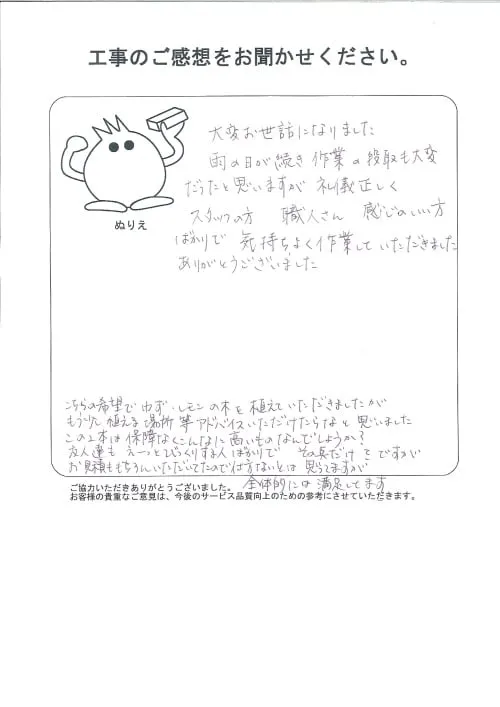 工事のご感想をお聞かせください。
ぬりえ
大変お世話になりました
雨の日が続き 作業の段取も大変
だったと思いますが 礼儀正しく
スタッフの方 職人さん 感じのいい方
ばかりで 気持ちよく作業していただきました
ありがとうございました
こちらの希望で ゆず・レモンの木を植えていただきましたが
もう少し 植える場所等アドバイスいただけたらなと思いました
この2本は保障なくこんなに高いものなんでしょうか?
友人達も えーっとびっくりする人ばかりで その点だけ です が
お見積ももちろんいただいてたので仕方ないとは 思ってますが
全体的には 満足してます
ご協力いただきありがとうございました。
お客様の貴重なご意見は、今後のサービス品質向上のための参考にさせていただきます。